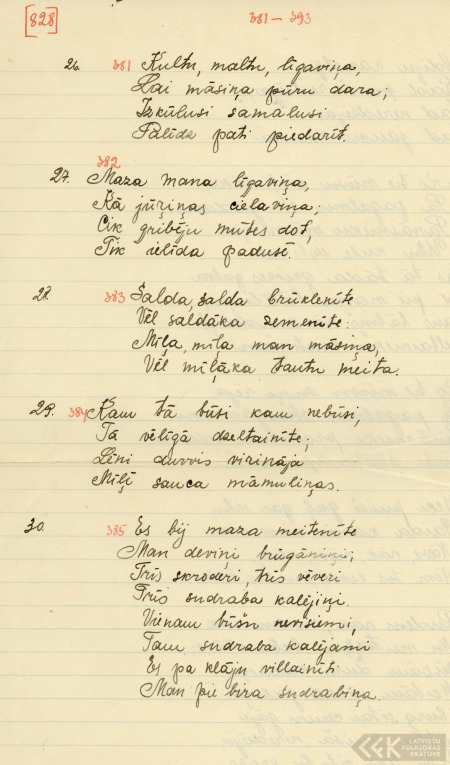 [828]
381-393
26. 381 Kultu, maltu, līgaviņa,
Lai māsiņa pūru dara;
Izkūlusi samalusi
Palīdz pati piedarīt.
27. 382 Maza mana līgaviņa,
Kā jūŗiņas cielaviņa;
Cik gribēju mutes dot,
Tik ielīda padusē.
28. 383 Salda, salda brūklenīte
Vēl saldāka zemenīte:
Mīļa, mīļa man māsiņa,
Vēl mīļāka tautu meita.
29. 384 Kam tā būsi kam nebūsi,
Tā vēlīgā dzeltainīte;
Lēni durvis virināja
Mīļi sauca māmuliņas.
30. 385 Es bij maza meitenīte
Man deviņi brūgāniņi;
Trīs skroderi, trīs vēveri
Trīs sudraba kalējiņi.
Vienam būšu nevisiemi,
Tam sudraba kalējami
Es pa klāju villainīti
Man pie bira sudrabiņa.
LATVIEŠU
FOLKLORAS
KRĀTUVE